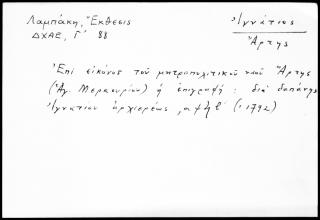 Λαμπάκη, Ἔκθεσις
ΔΧΑΕ, Γ΄ 88
Ἰγνάτιος
Ἄρτης
Ἐπί εἰκόνος τοῦ μητροπολιτικοῦ ναοῦ Ἄρτης
(Ἁγ. Μερκουρίου) ἡ ἐπιγραφή: διά δαπάνης
Ἰγνατίου ἀρχιερέως, αψλβ΄ (: 1792)